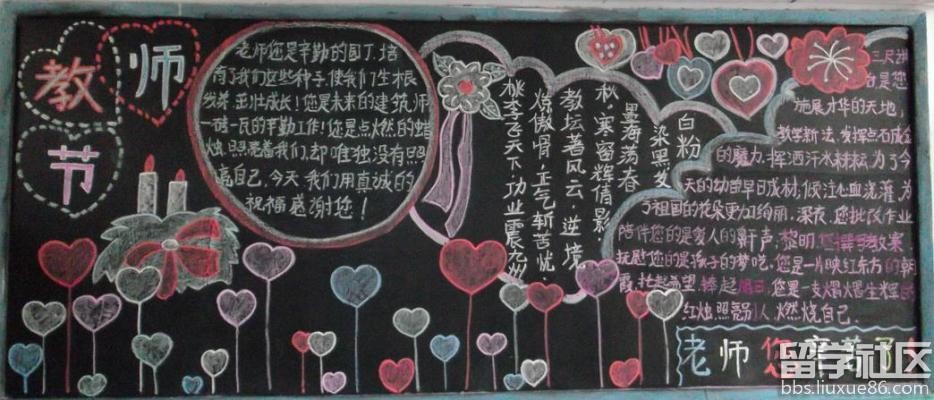 教师
节
老师您是辛勤的园丁,培
育了我们这些种子使我们生根
发芽,茁壮成长!您是未来的建筑师
一砖一瓦的辛勤工作!您是点燃的蜡
烛,照亮着我们,却唯独没有照
亮自己,今天,我们用真诚的
祝福感谢您!
白粉
染黑发
墨海荡春
秋,寒窗辉倩影.
教坛著风云,逆境
炼傲骨,正气斩苦忧.
桃李飞天下,功业震九州
三尺讲
台是您
施展才华的天地,
教学新法,发挥点石成金
的魔力,挥洒汗水 为了今
天的幼苗早日成材,倾注心血浇灌,为
了祖国的花朵更加绚丽.深夜,您批改作业
陪伴您的是爱人的鼾声.黎明,
抚慰您的是孩子的梦呓,您是一片映红东方的朝
霞,托起希望,捧起明日,您是一支熠熠生辉的
红烛,照亮别人,燃烧自己.
老师您辛苦了
留学社区
bbs.liuxue86.com